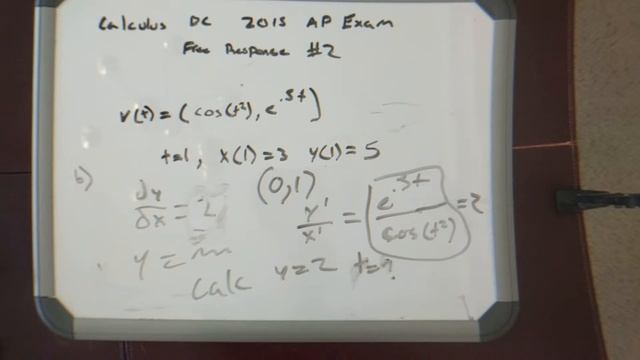 Calculus BC 2015 AP Exam
Free Response #2
v(t)=(cos(t²), e^.5t)
t=1, x(1)=3 y(1)=5
b)
dy/dx = 2
(0,1)
y'/x' = e^.5t/cos(t²) = 2
y = m
Calc y=2 t=?